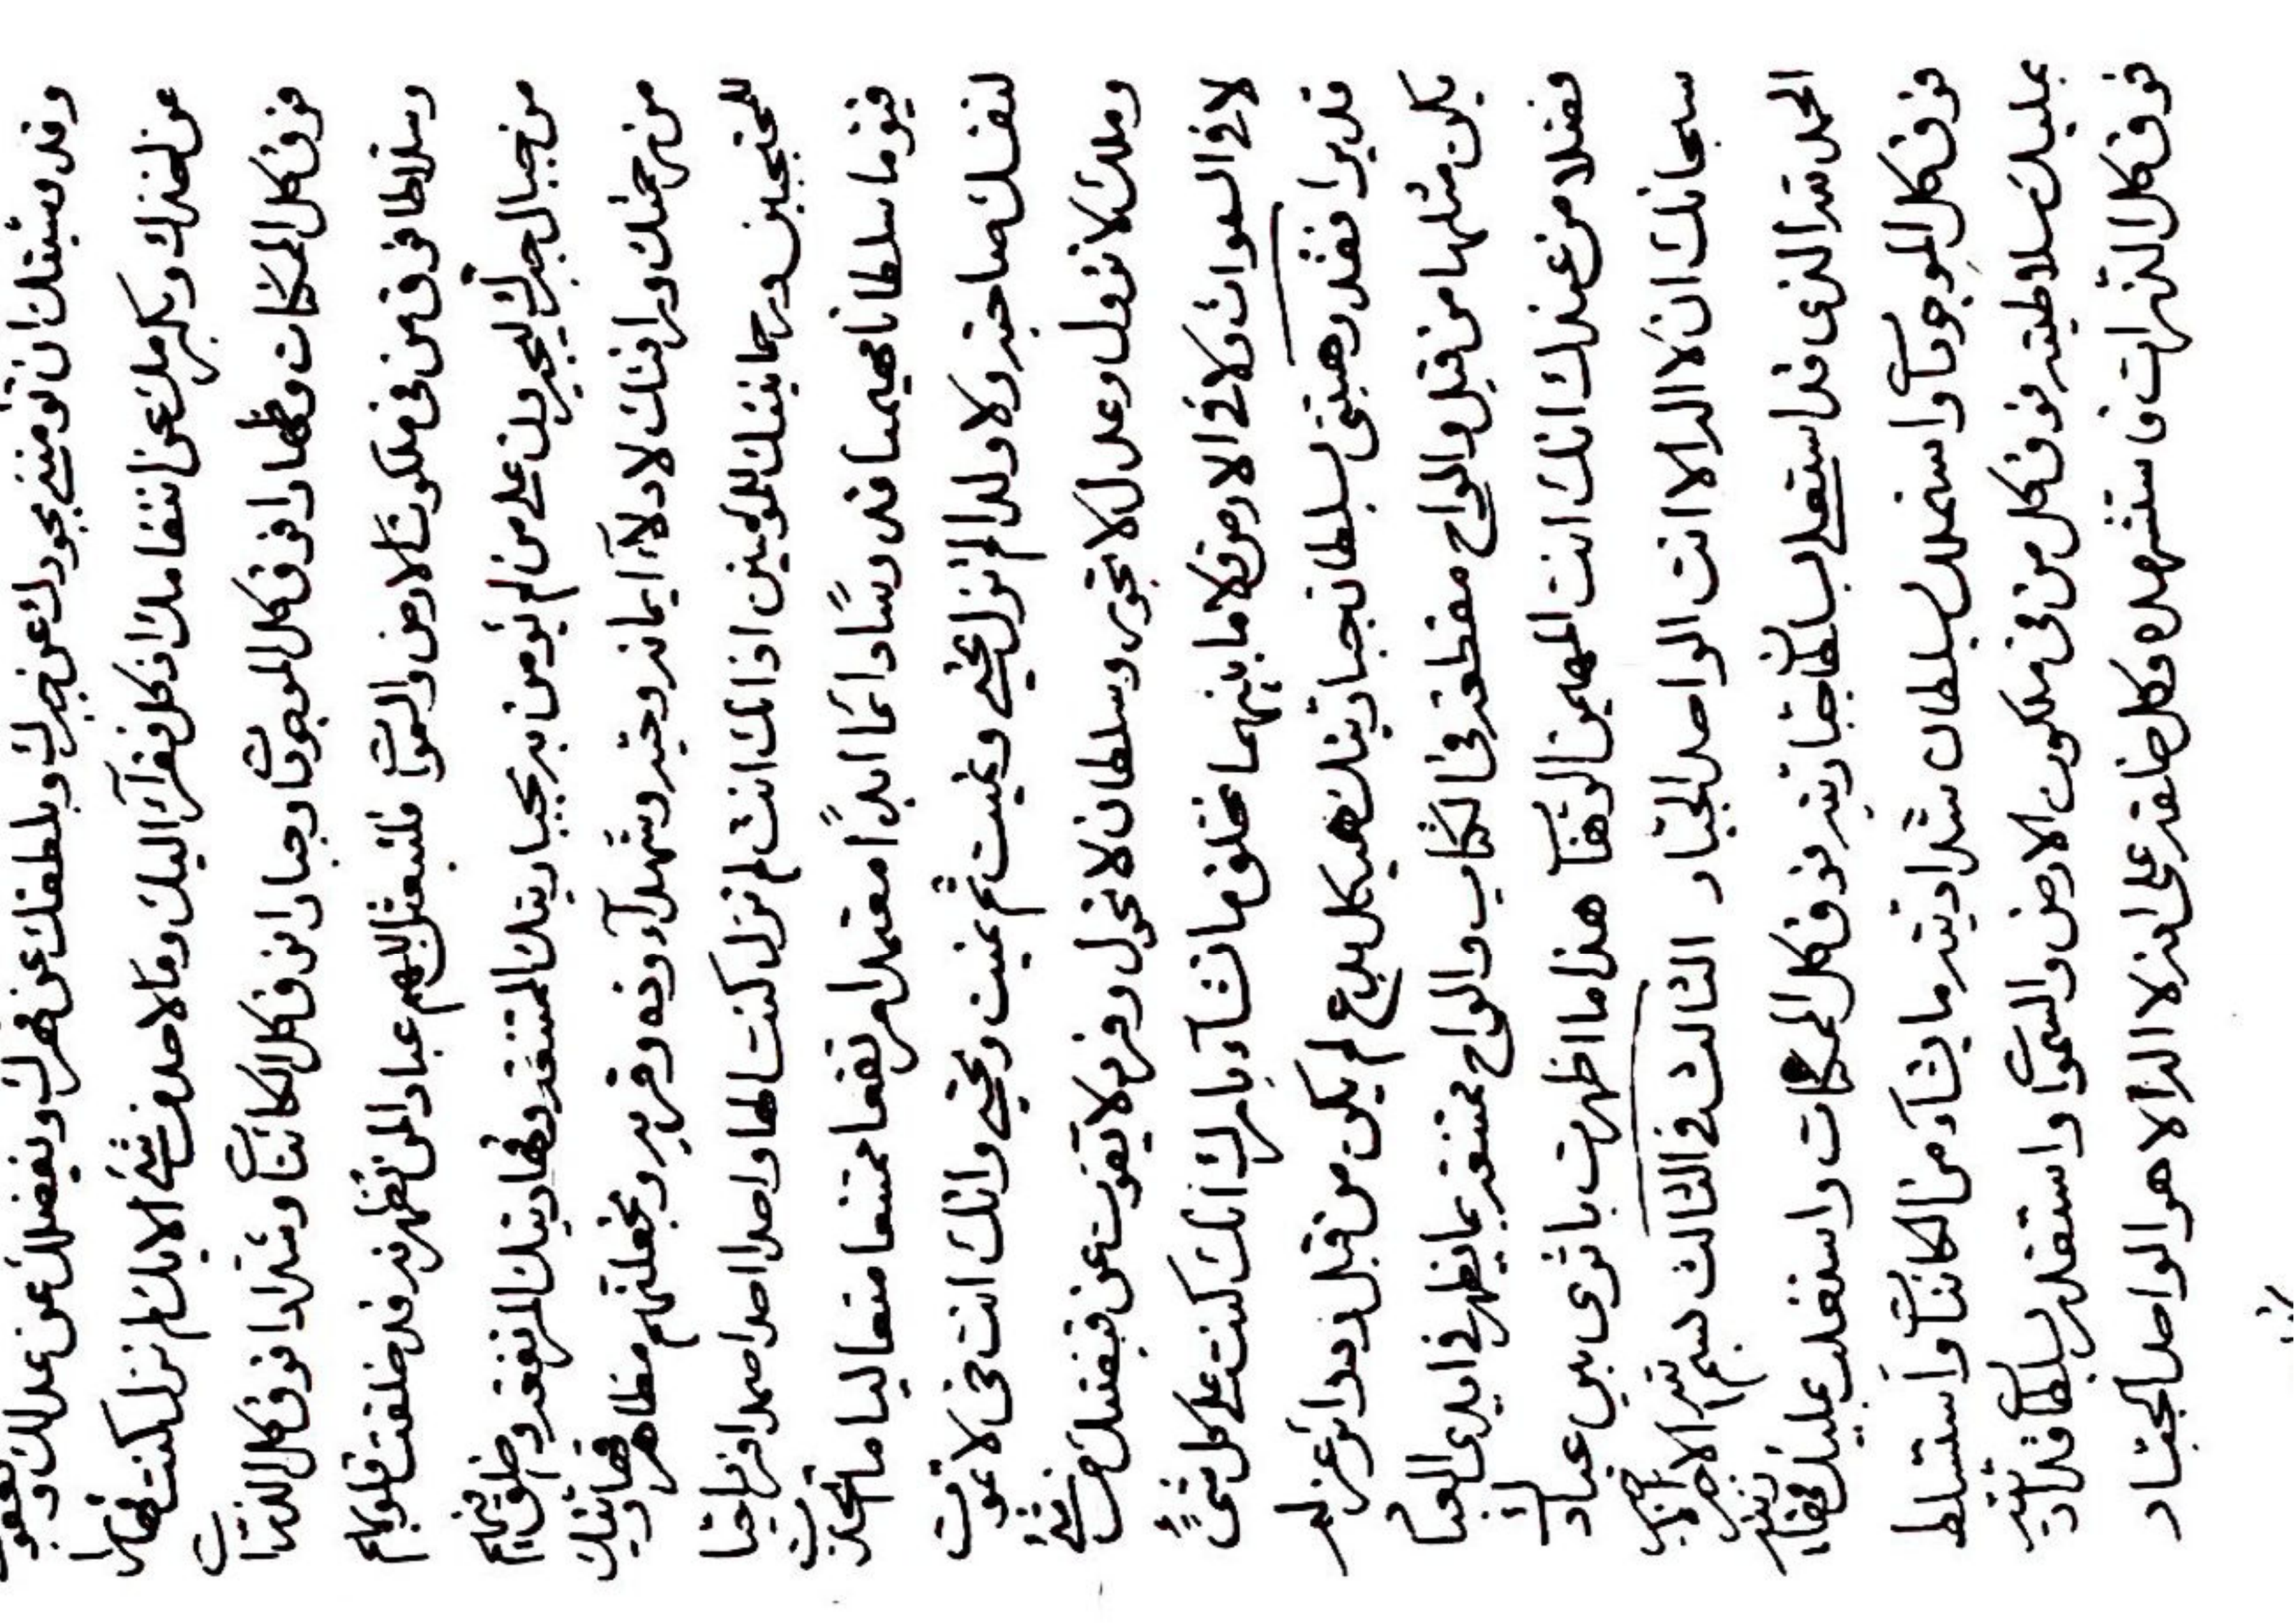 وقد مشيتك ان تؤمننى بجودك عن جبرك وبلطفك عن قهرك وبفضلك عن عدلك وبعفوك
عن اخذك وبكبرملك عن انتقامك اذ كل فقرآء اليك وما لاحد من شئ الا بك لم تزل كنت قهارا
فوق كل الممكنات وظهارا فوق كل الموجودات وجبارا فوق كل الكائنات وشدادا فوق كل الذرات
وسلاطا فوق من فى ملكوت الارض والسموات فلتبعثن اللهم عبادا لمن تظهرنه قد خلقت قلوبهم
من جبال جبرك ليجبرون على من لم يؤمن به بجباريتك الممتنعة وقهاريتك المرتفعة وخلق فيهم
من رحمتك ورافتك لادلآء ايمانه وحبه وشهدآء وده وقربه وتجعلنهم مظاهر قهاريتك
للمحتجبين ورحمانيتك للمؤمنين اذ انك انت لم تزل كنت الها واحدا احدا صمدا فردا حيا
قيوما سلطانا مهيمنا قدوسا دائما ابدا معتمدا مرتفعا ممتنعا متعاليا ما اتخذت
لنفسك صاحبة ولا ولدا لم تزل تحيى وتميت ثم تميت وتحيى وانك انت حى لا تموت
وملك لا تزول وعدل لا تجور وسلطان لا تحول وفرد لا يفوت عن قبضتك من شئ
لا فى السموات ولا فى الارض ولا ما بينهما تخلق ما تشآء بامرك انك كنت على كل شئ
قديرا فقد وهبتنى بسلطان جباريتك هيكل بدع لم يكن من قبل ودوائر عز لم
يكن مثلها من قبل والواح مقطعة فى الكتاب والواح ممتنعة بما يظهر فى ايدى العباد
فضلا من عندك انك انت المهيمن الوهاب هذا ما اظهرت باثرى بين عبادك
سبحانك ان لا اله الا انت الواحد الجبار الثالث فى الثالث بسم الله الاجبر الاجبر
الحمد لله الذى قد استعلى بسلطان جباريته فوق كل الممكنات واستعلى بمليك قهاريته
فوق كل الموجودات واستملك بسلطان شداديته ما يشآء من الكائنات واستسلط
بمليك سلاطيته فوق كل من فى ملكوت الارض والسموات واستقدر بسلطان قداريته
فوق كل الذرات فاستشهده وكل خلقه على انه لا اله الا هو الواحد الجبار